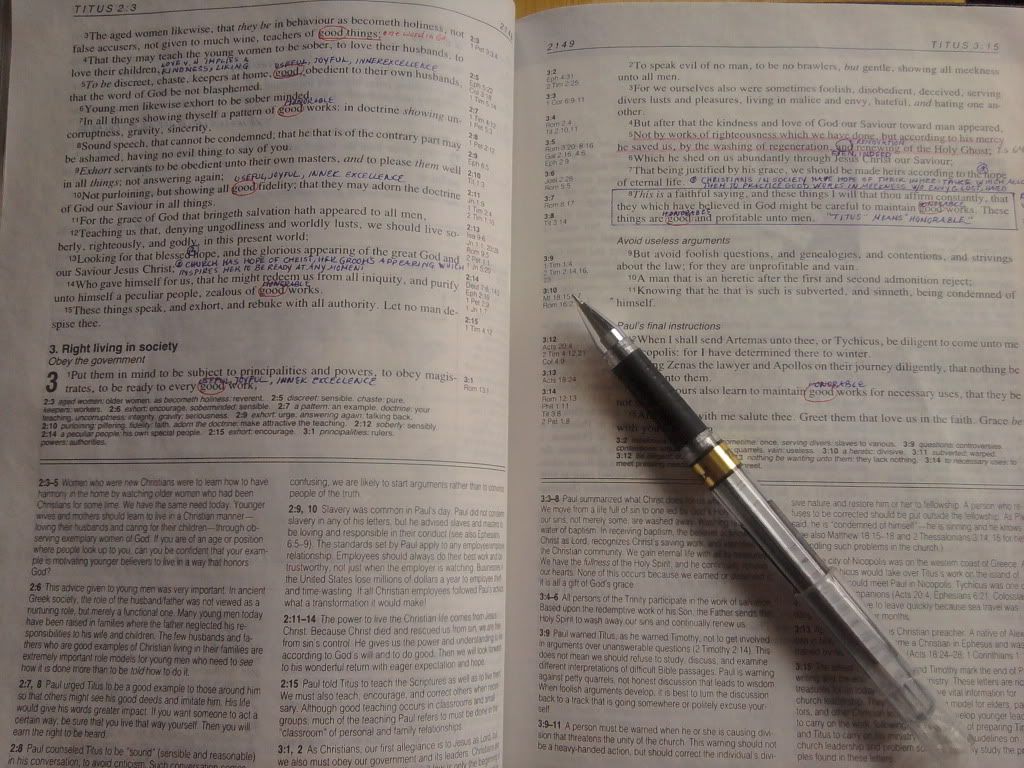 TITUS 2:3
3The aged women likewise, that they be in behaviour as becometh holiness, not
false accusers, not given to much wine, teachers of good things; one word in Gr.
4That they may teach the young women to sober, to love their husbands, to
love their children,
LOVE IMPLIES & KINDNESS, LIKING
USEFUL, JOYFUL, INNER EXCELLENCE
5To be discreet, chaste, keepers at home, good, obedient to their own husbands,
that the word of God be not blasphemed.
6Young men likewise exhort to be sober minded.
HONORABLE
7In all things showing thyself a pattern of good works: in doctrine showing un-
corruptness, gravity, sincerity.
8Sound speech, that cannot be condemned; that he that is of the contrary part may
be ashamed, having no evil thing to say of you.
9Exhort servants to be obedient unto their own masters, and to please them well
in all things; not answering again;
USEFUL, JOYFUL, INNER EXCELLENCE
10Not purloining, but showing all good fidelity; that they may adorn the doctrine
of God our Saviour in all things.
11For the grace of God that bringeth salvation hath appeared to all men,
12Teaching us that, denying ungodliness and worldly lusts, we should live so-
berly, righteously, and godly, in this present world;
13Looking for that blessed hope, and the glorious appearing of the great God and
our Saviour Jesus Christ;
CHURCH HAS HOPE OF CHRIST, HER GROOMS APPEARING WHICH
INSPIRES HER TO BE READY AT ANY MOMENT
14Who gave himself for us, that he might redeem us from all iniquity, and purify
HONORABLE
unto himself a peculiar people, zealous of good works.
15These things speak, and exhort, and rebuke with all authority. Let no man de-
spise thee.
3. Right living in society
Obey the government
3 1Put them in mind to be subject to principalities and powers, to obey magis-
USEFUL, JOYFUL, INNER EXCELLENCE
trates, to be ready to every good work,
2:3
1 Pet 3:3,4
2:5
Eph 5:22
2:7
1 Tim 4:12
1 Pet 5:3
2:8
1 Pet 2:12
2:9
Eph 6:5
2:10
2:11
2:12
2:13
2:14
2:15
1 Tim 4:12
3:1
Rom 13:1
2:3 aged women: older women. as becometh holiness: reverent. 2:5 discreet: sensible. chaste: pure.
keepers: workers. 2:6 exhort: encourage. soberminded: sensible. 2:7 a pattern: an example. doctrine: your
teaching. uncorruptness: integrity. gravity: seriousness. 2:9 exhort: urge. answering again: talking back.
2:10 purloining: pilfering. fidelity: faith. adorn the doctrine: make attractive the teaching. 2:12 soberly: sensibly.
2:14 a peculiar people: his own special people. 2:15 exhort: encourage. 3:1 principalities: rulers.
powers: authorities.
2:3–5 Women who were new Christians were to learn how to have
harmony in the home by watching older women who had been
Christians for some time. We have the same need today. Younger
wives and mothers should learn to live in a Christian manner—
loving their husbands and caring for their children—through ob-
serving exemplary women of God. If you are of an age or position
where people look up to you, can you be confident that your exam-
ple is motivating younger believers to live in a way that honors
God?
2:6 This advice given to young men was very important. In ancient
Greek society, the role of the husband/father was not viewed as a
nurturing role, but merely a functional one. Many young men today
have been raised in families where the father neglected his re-
sponsibilities to his wife and children. The few husbands and fa-
thers who are good examples of Christian living in their families are
extremely important role models for young men who need to see
how it is done more than to be told how to do it.
2:7, 8 Paul urged Titus to be a good example to those around him
so that others might see his good deeds and imitate him. His life
would give his words greater impact. If you want someone to act a
certain way, be sure that you live that way yourself. Then you will
earn the right to be heard.
2:8 Paul counseled Titus to be "sound" (sensible and reasonable)
in his conversation, to avoid criticism.
confusing, we are likely to start arguments rather than to convince
people of the truth.
2:9, 10 Slavery was common in Paul's day. Paul did not condemn
slavery in any of his letters, but he advised slaves and masters to
be loving and responsible in their conduct (see also Ephesians
6:5–9). The standards set by Paul apply to any employee/employer
relationship. Employees should always do their best work and be
trustworthy, not just when the employer is watching. Businesses in
the United States lose millions of dollars a year to employee theft
and time-wasting. If all Christian employees followed Paul's advice
what a transformation it would make!
2:11–14 The power to live the Christian life comes from Jesus
Christ. Because Christ died and rescued us from sin, we are free
from sin's control. He gives us the power and understanding to live
according to God's will and to do good. Then we will look forward
to his wonderful return with eager expectation and hope.
2:15 Paul told Titus to teach the Scriptures as well as to live them.
We must also teach, encourage, and correct others when neces-
sary. Although good teaching occurs in classrooms and small
groups, much of the teaching Paul refers to must be done in the
"classroom" of personal and family relationships.
3:1, 2 As Christians, our first allegiance is to Jesus as Lord, but
we also must obey our government and its leaders. Christians
2149
TITUS 3:15
2To speak evil of no man, to be no brawlers, but gentle, showing all meekness
unto all men.
3For we ourselves also were sometimes foolish, disobedient, deceived, serving
divers lusts and pleasures, living in malice and envy, hateful, and hating one an-
other.
4But after that the kindness and love of God our Saviour toward man appeared,
5Not by works of righteousness which we have done, but according to his mercy
he saved us, by the washing of regeneration, and renewing of the Holy Ghost;
RENOVATION
EVEN, INDEED
6Which he shed on us abundantly through Jesus Christ our Saviour;
7That being justified by his grace, we should be made heirs according to the hope
of eternal life.
CHRISTIANS IN SOCIETY HAVE HOPE OF THEIR INHERITANCE WHICH ALLOWS
THEM TO PRACTICE GOOD WORKS IN MEEKNESS
8This is a faithful saying, and these things I will that thou affirm constantly, that
HONORABLE
they which have believed in God might be careful to maintain good works. These
HONORABLE
things are good and profitable unto men. "TITUS" MEANS "HONORABLE"
Avoid useless arguments
9But avoid foolish questions, and genealogies, and contentions, and strivings
about the law; for they are unprofitable and vain.
10A man that is an heretic after the first and second admonition reject;
11Knowing that he that is such is subverted, and sinneth, being condemned of
himself.
Paul's final instructions
12When I shall send Artemas unto thee, or Tychicus, be diligent to come unto me
opolis: for I have determined there to winter.
ing Zenas the lawyer and Apollos on their journey diligently, that nothing be
unto them.
HONORABLE
ours also learn to maintain good works for necessary uses, that they be
not
with me salute thee. Greet them that love us in the faith. Grace be
with you
3:2
Eph 4:31
2 Tim 2:25
3:3
1 Cor 6:9-11
3:4
Rom 2:4
Tit 2:10,11
3:5
Rom 3:20; 8:16
Gal 2:16; 4:6
Eph 2:9
3:6
Joel 2:28
Rom 5:5
3:7
Rom 8:17
3:8
Tit 3:14
3:9
1 Tim 1:4
2 Tim 2:14,16,
23
3:10
Mt 18:15-17
Rom 16:17
3:12
Acts 20:4
2 Tim 4:12,21
Col 4:9
3:13
Acts 18:24
3:14
Rom 12:13
Phil 1:11
Tit 3:8
2 Pet 1:8
sometime: once. serving divers: slaves to various. 3:9 questions: controversies
quarrels. vain: useless. 3:10 a heretic: divisive. 3:11 subverted: warped.
3:13 nothing be wanting unto them: they lack nothing. 3:14 to necessary uses: to
meet pressing
3:3–8 Paul summarized what Christ does for us
We move from a life full of sin to one led by God's Holy
our sins, not merely some, are washed away. Washing
water of baptism. In becoming baptism, the believer
Christ as Lord, recognizes Christ's saving work, and
the Christian community. We gain eternal life with all its
We have the fullness of the Holy Spirit, and he continually
our hearts. None of this occurs because we earned or deserved it;
it is all a gift of God's grace.
3:4–6 All persons of the Trinity participate in the work of salvation.
Based upon the redemptive work of his Son, the Father sends the
Holy Spirit to wash away our sins and continually renew us.
3:9 Paul warned Titus, as he warned Timothy, not to get involved
in arguments over unanswerable questions (2 Timothy 2:14). This
does not mean we should refuse to study, discuss, and examine
different interpretations of difficult Bible passages. Paul is warning
against petty quarrels, not honest discussion that leads to wisdom
When foolish arguments develop, it is best to turn the discussion
back to a track that is going somewhere or politely excuse your-
self.
3:9–11 A person must be warned when he or she is causing divi-
sion that threatens the unity of the church. This warning should not
be a heavy-handed action, but should correct the individual's divi-
sive nature and restore him or her to fellowship. A person who re-
fuses to be corrected should be put outside the fellowship. As Paul
said, he is "condemned of himself"—he is sinning and he knows
also Matthew 18:15–18 and 2 Thessalonians 3:14, 15 for
handling such problems in the church.)
city of Nicopolis was on the western coast of Greece.
Tychicus would take over Titus's work on the island of
would meet Paul in Nicopolis. Tychicus was one of
companions (Acts 20:4; Ephesians 6:21; Colossians
to leave quickly because sea travel was
Christian preacher. A native of Alex
a Christian in Ephesus and was
(Acts 18:24–28; 1 Corinthians 1:
and Timothy mark the end of P
ministry. These letters are
vital information for
church leadership.
tors, and other Christian
to carry on the work, following
to carry on his ministry.
church leadership and problem
ples found in these letters.